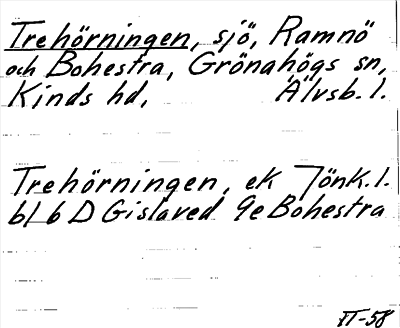 Trehörningen, sjö, Ramnö
och Bohestra, Grönahögs sn,
Kinds hd, Älvsb. l.
Trehörningen, ek Jönk. l.
bl 6 D Gislaved 9e Bohestra
VI-58